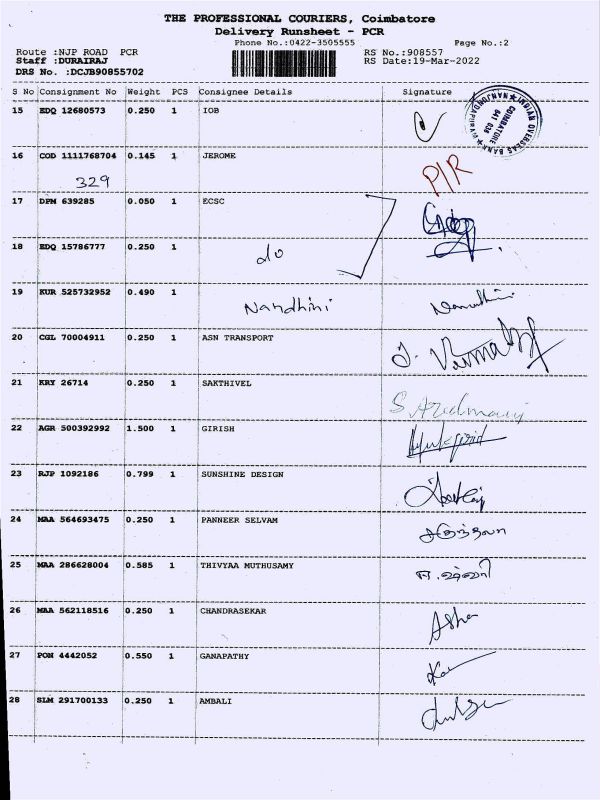 THE PROFESSIONAL COURIERS, Coimbatore
Delivery Runsheet - PCR
Phone No.:0422-3505555 Page No.:2
Route :NJP ROAD PCR RS No.:908557
Staff :DURAIRAJ RS Date:19-Mar-2022
DRS No. :DCJB90855702
S No Consignment No Weight PCS Consignee Details Signature
15 EDQ 12680573 0.250 1 IOB
INDIAN OVERSEAS BANK ★ NANJUNDAPURAM ★
COIMBATORE
641 036
16 COD 1111768704 0.145 1 JEROME P/R
329
17 DPM 639285 0.050 1 ECSC
18 EDQ 15786777 0.250 1 do
19 KUR 525732952 0.490 1 Nandhini Nandhini
20 CGL 70004911 0.250 1 ASN TRANSPORT
21 KRY 26714 0.250 1 SAKTHIVEL
22 AGR 500392992 1.500 1 GIRISH
23 RJP 1092186 0.799 1 SUNSHINE DESIGN
24 MAA 564693475 0.250 1 PANNEER SELVAM
25 MAA 286628004 0.585 1 THIVYAA MUTHUSAMY
26 MAA 562118516 0.250 1 CHANDRASEKAR Asha
27 PON 4442052 0.550 1 GANAPATHY
28 SLM 291700133 0.250 1 AMBALI